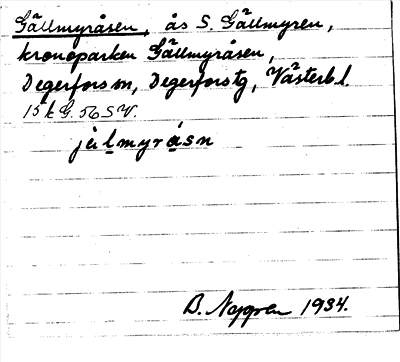 Gällmyråsen, ås S. Gällmyren,
kronoparken Gällmyråsen,
Degerfors sn, Degerfors tg, Västerb. l.
15 k G. 56 S V.
jälmyråsn
B. Nygren 1934.